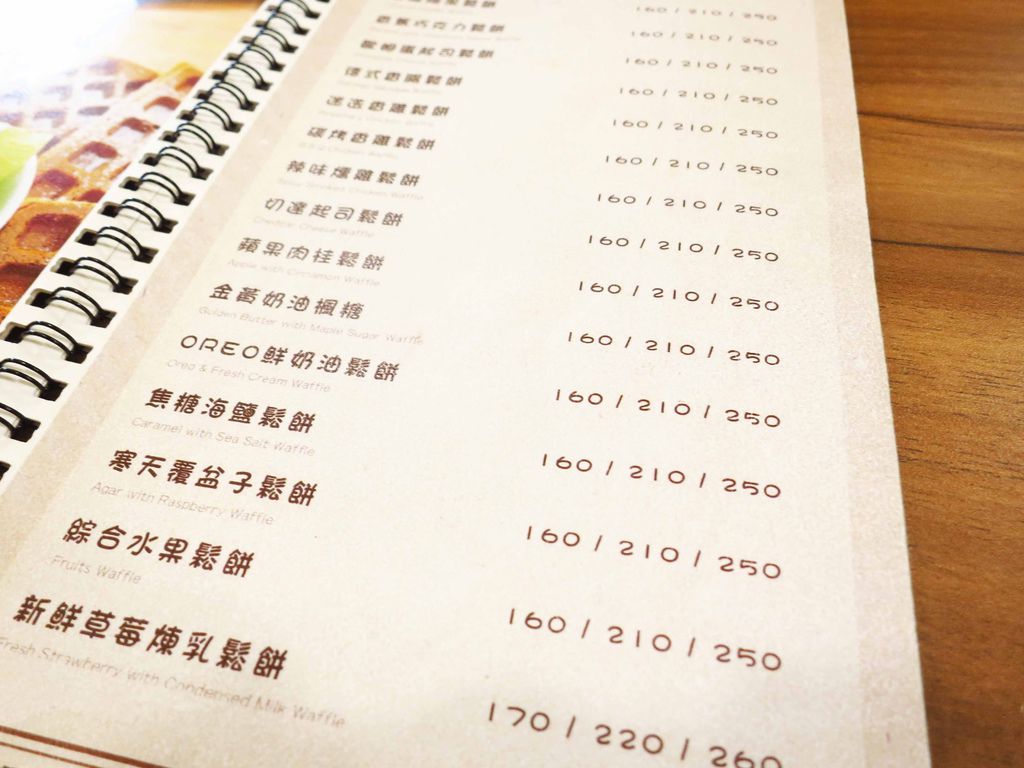 160 / 210 / 250
香蕉巧克力鬆餅 160 / 210 / 250
起司鬆餅 160 / 210 / 250
德式香腸鬆餅 160 / 210 / 250
迷迭香雞鬆餅 160 / 210 / 250
碳烤香雞鬆餅 160 / 210 / 250
辣味燻雞鬆餅 160 / 210 / 250
Spicy Smoked Chicken Waffle
切達起司鬆餅 160 / 210 / 250
Cheddar Cheese Waffle
蘋果肉桂鬆餅 160 / 210 / 250
Apple with Cinnamon Waffle
金黃奶油楓糖 160 / 210 / 250
Golden Butter with Maple Sugar Waffle
OREO鮮奶油鬆餅 160 / 210 / 250
Oreo & Fresh Cream Waffle
焦糖海鹽鬆餅 160 / 210 / 250
Caramel with Sea Salt Waffle
寒天覆盆子鬆餅 160 / 210 / 250
Agar with Raspberry Waffle
綜合水果鬆餅 160 / 210 / 250
Fruits Waffle
新鮮草莓煉乳鬆餅 170 / 220 / 260
Fresh Strawberry with Condensed Milk Waffle